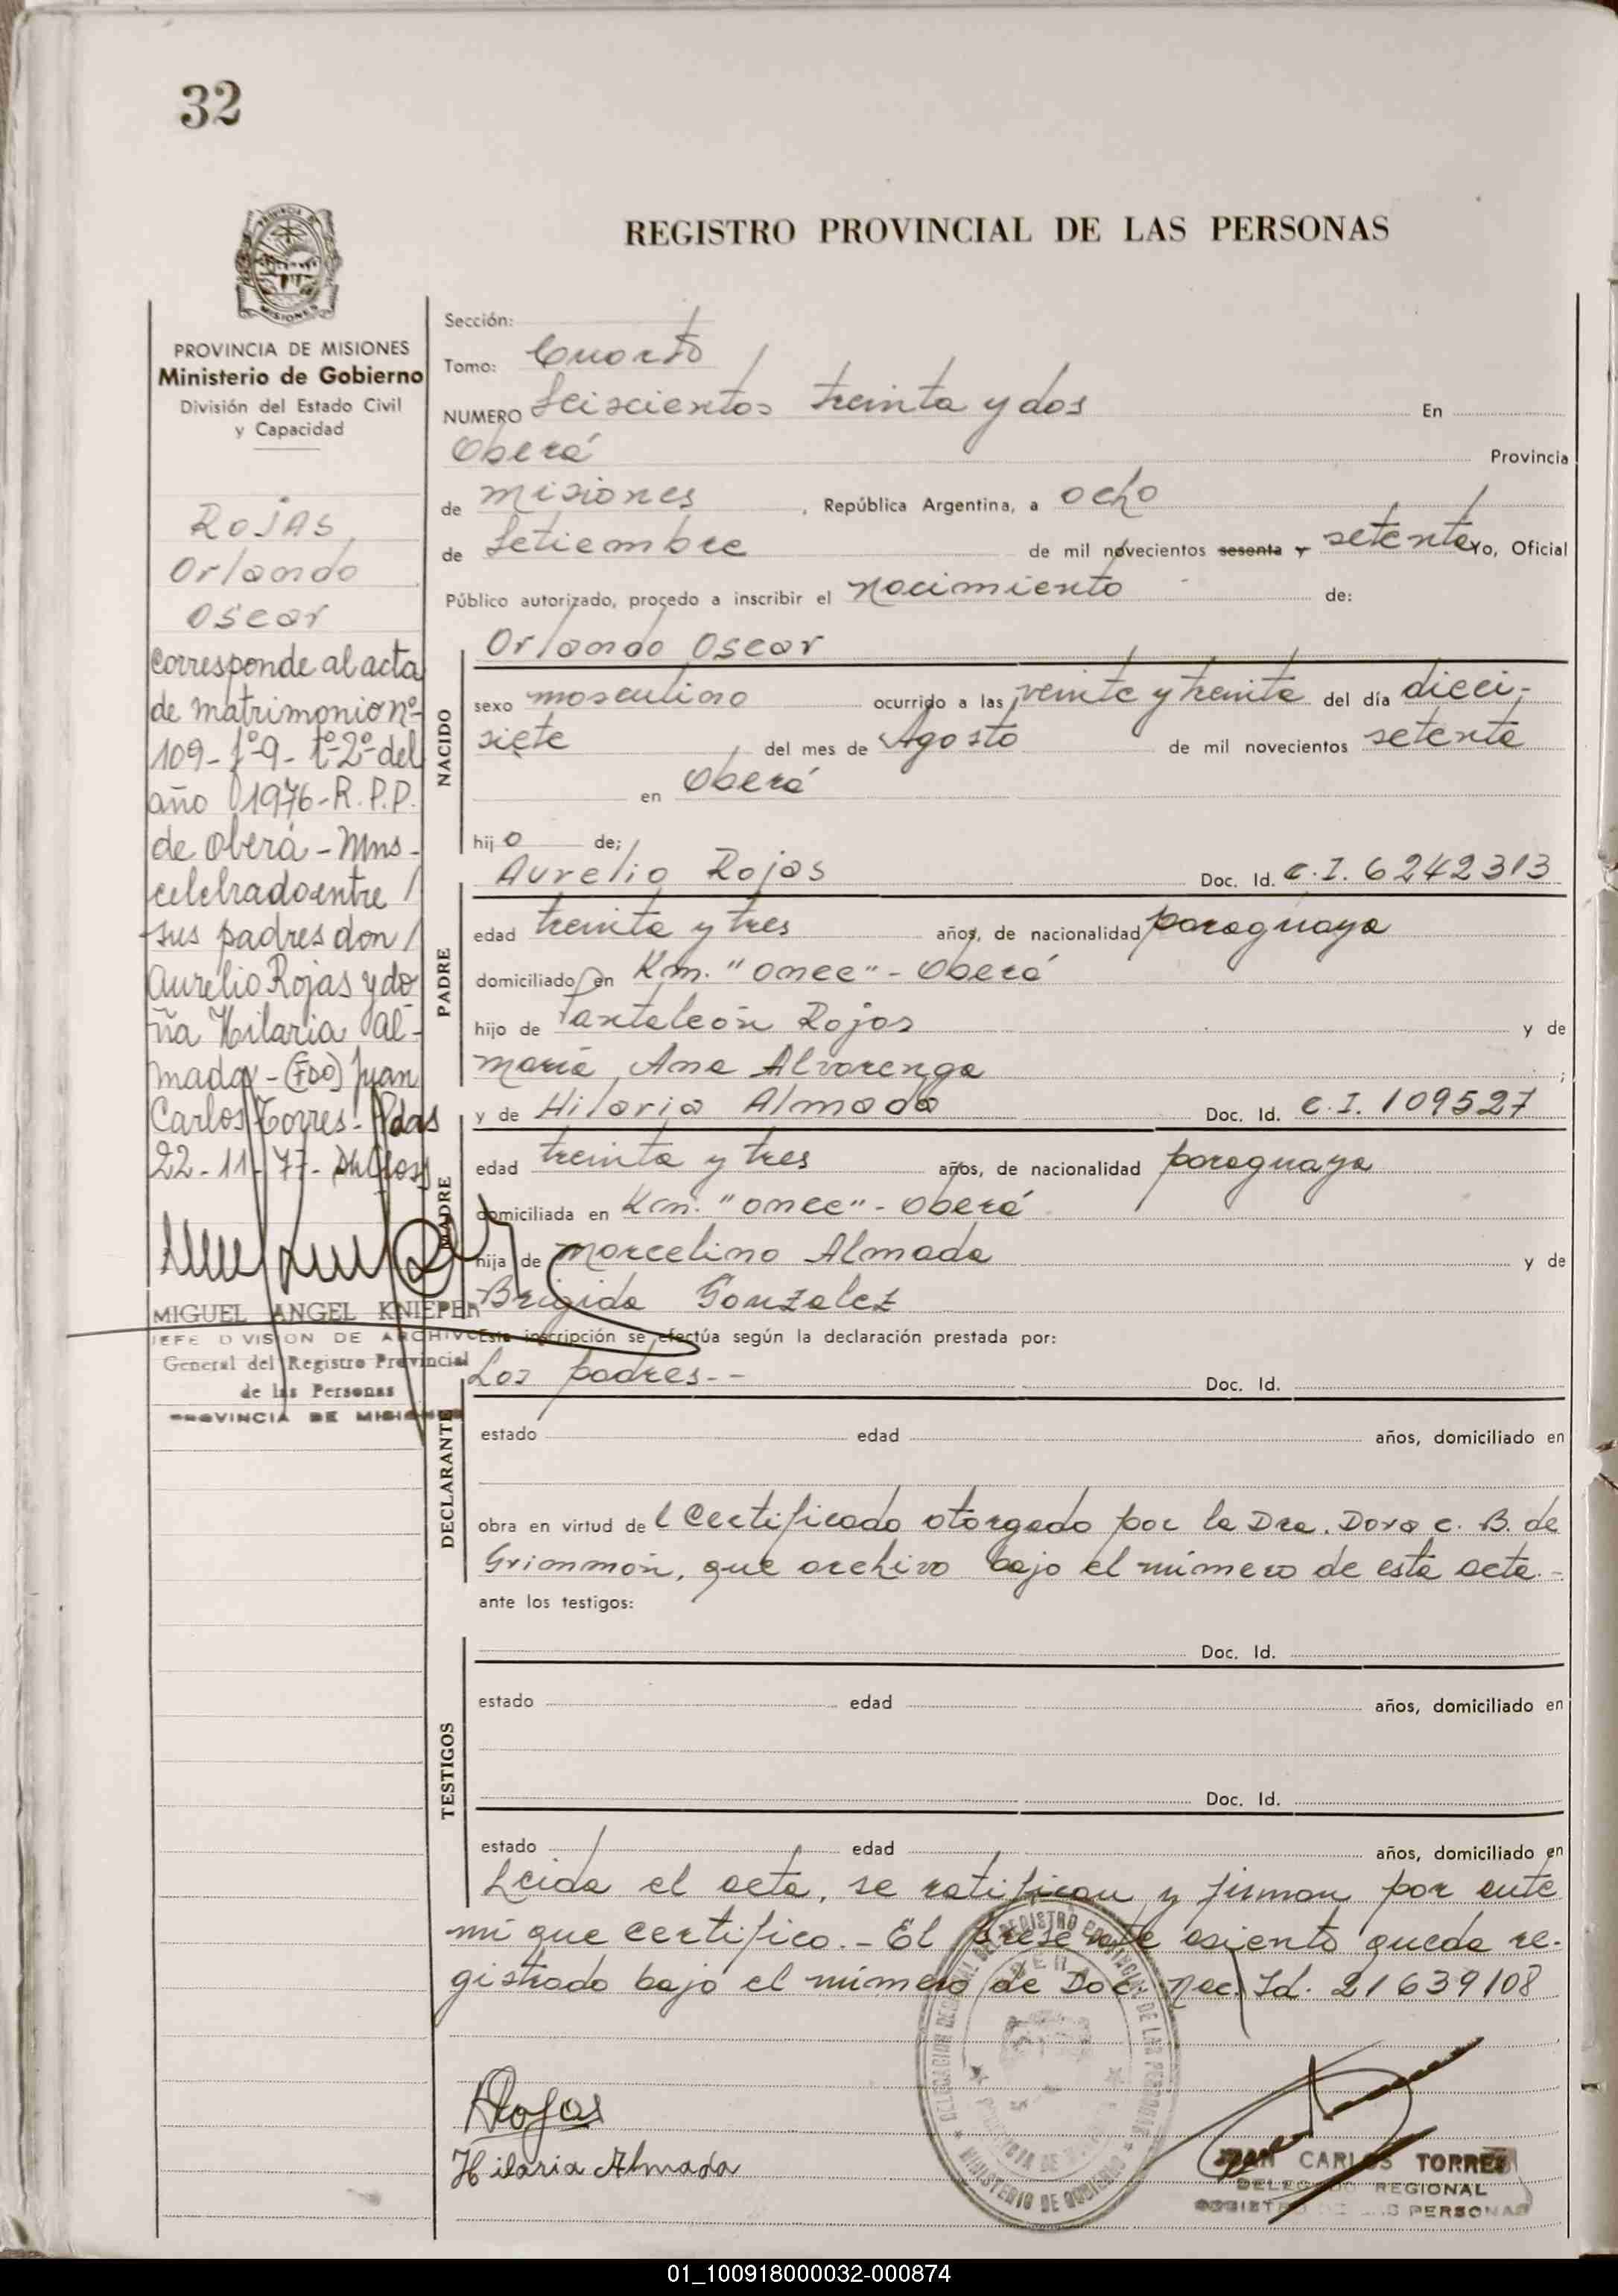 32
REGISTRO PROVINCIAL DE LAS PERSONAS
PROVINCIA DE MISIONES
Ministerio de Gobierno
División del Estado Civil
y Capacidad
Rojas
Orlando
Oscar
Corresponde al acta
de matrimonio nº
109-fº-9-tº-2º-del
año 1976-R.P.P.
de Oberá-Mns-
celebrado entre /
sus padres don /
Aurelio Rojas y do
ña Hilaria Al-
mada - (FDO) Juan
Carlos Torres- Pdas
22-11-77-
MIGUEL ANGEL KNIEPER
JEFE DIVISION DE ARCHIVO
General del Registro Provincial
de las Personas
PROVINCIA DE MISIONES
Sección:
Tomo: Cuarto
NUMERO Seiscientos treinta y dos En
Oberá Provincia
de Misiones , República Argentina, a ocho
de Setiembre de mil novecientos sesenta y setenta yo, Oficial
Público autorizado, procedo a inscribir el Nacimiento de:
Orlando Oscar
NACIDO
sexo masculino ocurrido a las veinte y treinta del día dieci-
siete del mes de Agosto de mil novecientos setenta
en Oberá
hijo de;
Aurelio Rojas Doc. Id. C.I. 6242313
PADRE
edad treinta y tres años, de nacionalidad paraguaya
domiciliado en Km. "once" - Oberá
hijo de Pantaleón Rojas y de
María Ana Alvarenga ;
y de Hilaria Almada Doc. Id. C.I. 109527
MADRE
edad treinta y tres años, de nacionalidad paraguaya
domiciliada en Km. "once" - Oberá
hija de Marcelino Almada y de
Brigida Gonzalez
Esta inscripción se efectúa según la declaración prestada por:
Los padres.-- Doc. Id.
DECLARANTE
estado edad años, domiciliado en
obra en virtud de l Certificado otorgado por la Dra. Dora C. B. de
Grimmon, que archivo bajo el número de esta acta.-
ante los testigos:
Doc. Id.
TESTIGOS
estado edad años, domiciliado en
Doc. Id.
estado edad años, domiciliado en
Leida el acta, se ratifican y firman por ante
mi que certifico.- El presente asiento queda re-
gistrado bajo el número de Doc. Nac. Id. 21639108
Rojas
Hilaria Almada
DELEGACION REGIONAL DEL REGISTRO PROVINCIAL DE LAS PERSONAS
OBERA
PROVINCIA DE MISIONES
MINISTERIO DE GOBIERNO
JUAN CARLOS TORRES
DELEGADO REGIONAL
REGISTRO DE LAS PERSONAS
01_100918000032-000874